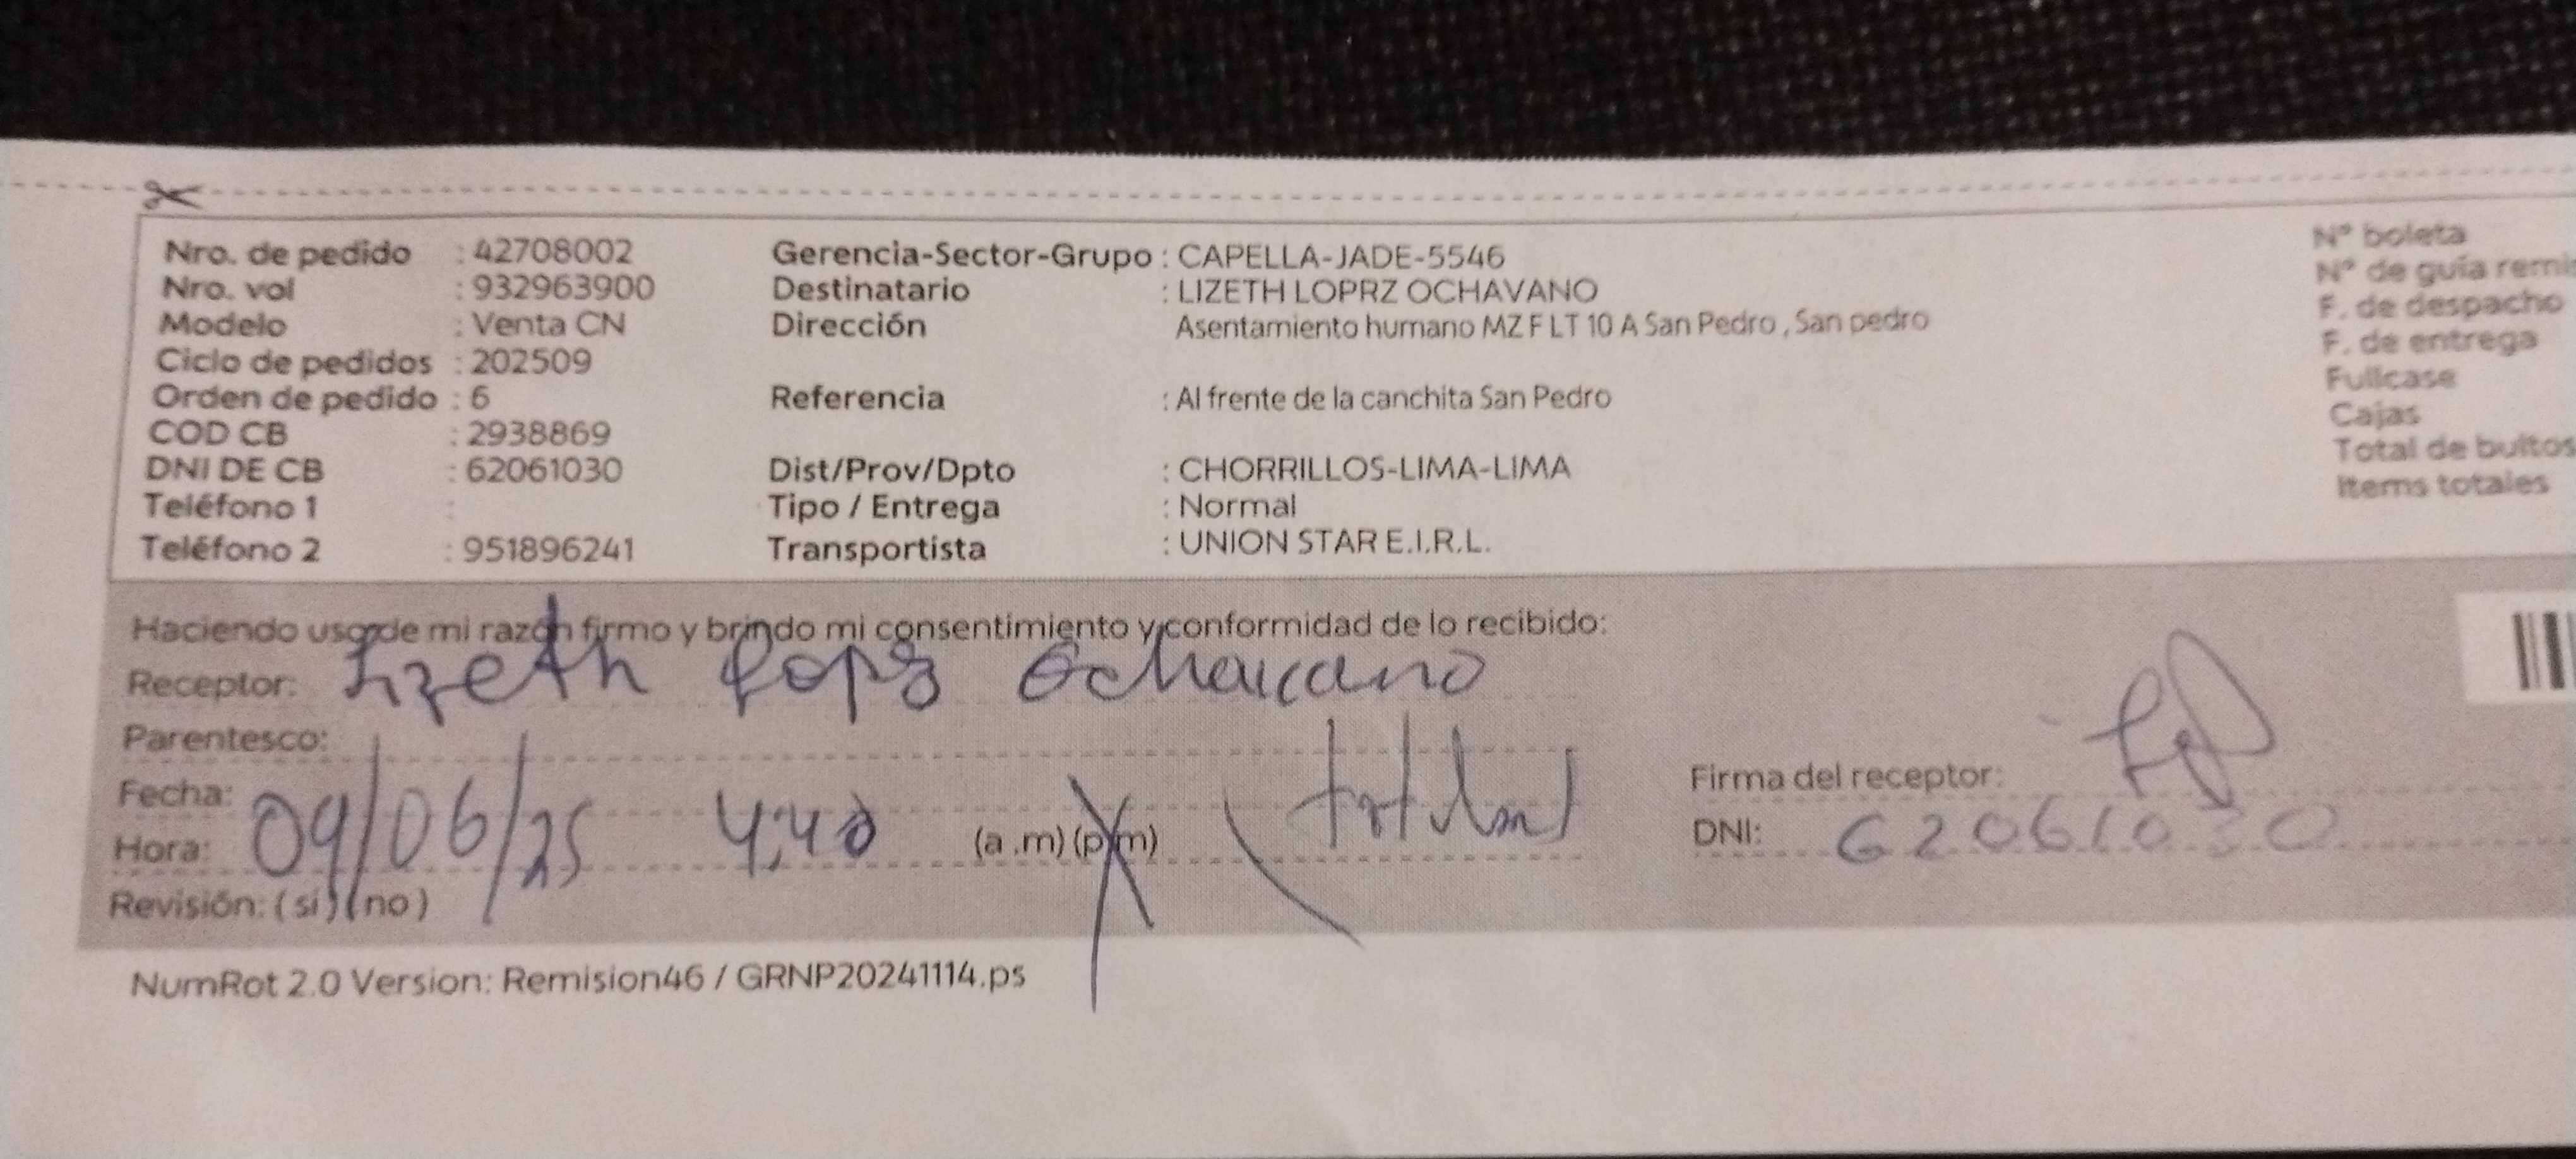 Nro. de pedido : 42708002
Nro. vol : 932963900
Modelo : Venta CN
Ciclo de pedidos : 202509
Orden de pedido : 6
COD CB : 2938869
DNI DE CB : 62061030
Teléfono 1 :
Teléfono 2 : 951896241
Gerencia-Sector-Grupo : CAPELLA-JADE-5546
Destinatario : LIZETH LOPRZ OCHAVANO
Dirección Asentamiento humano MZ F LT 10 A San Pedro , San pedro
Referencia : Al frente de la canchita San Pedro
Dist/Prov/Dpto : CHORRILLOS-LIMA-LIMA
Tipo / Entrega : Normal
Transportista : UNION STAR E.I.R.L.
N° boleta
N° de guía remis
F. de despacho
F. de entrega
Fullcase
Cajas
Total de bultos
Items totales
Haciendo uso de mi razón firmo y brindo mi consentimiento y conformidad de lo recibido:
Receptor: Lizeth
Parentesco:
Fecha: 09/06/25
Hora: 4:40 (a .m) (p.m)
Revisión: ( si ) ( no )
Firma del receptor:
DNI: 62061030
NumRot 2.0 Version: Remision46 / GRNP20241114.ps